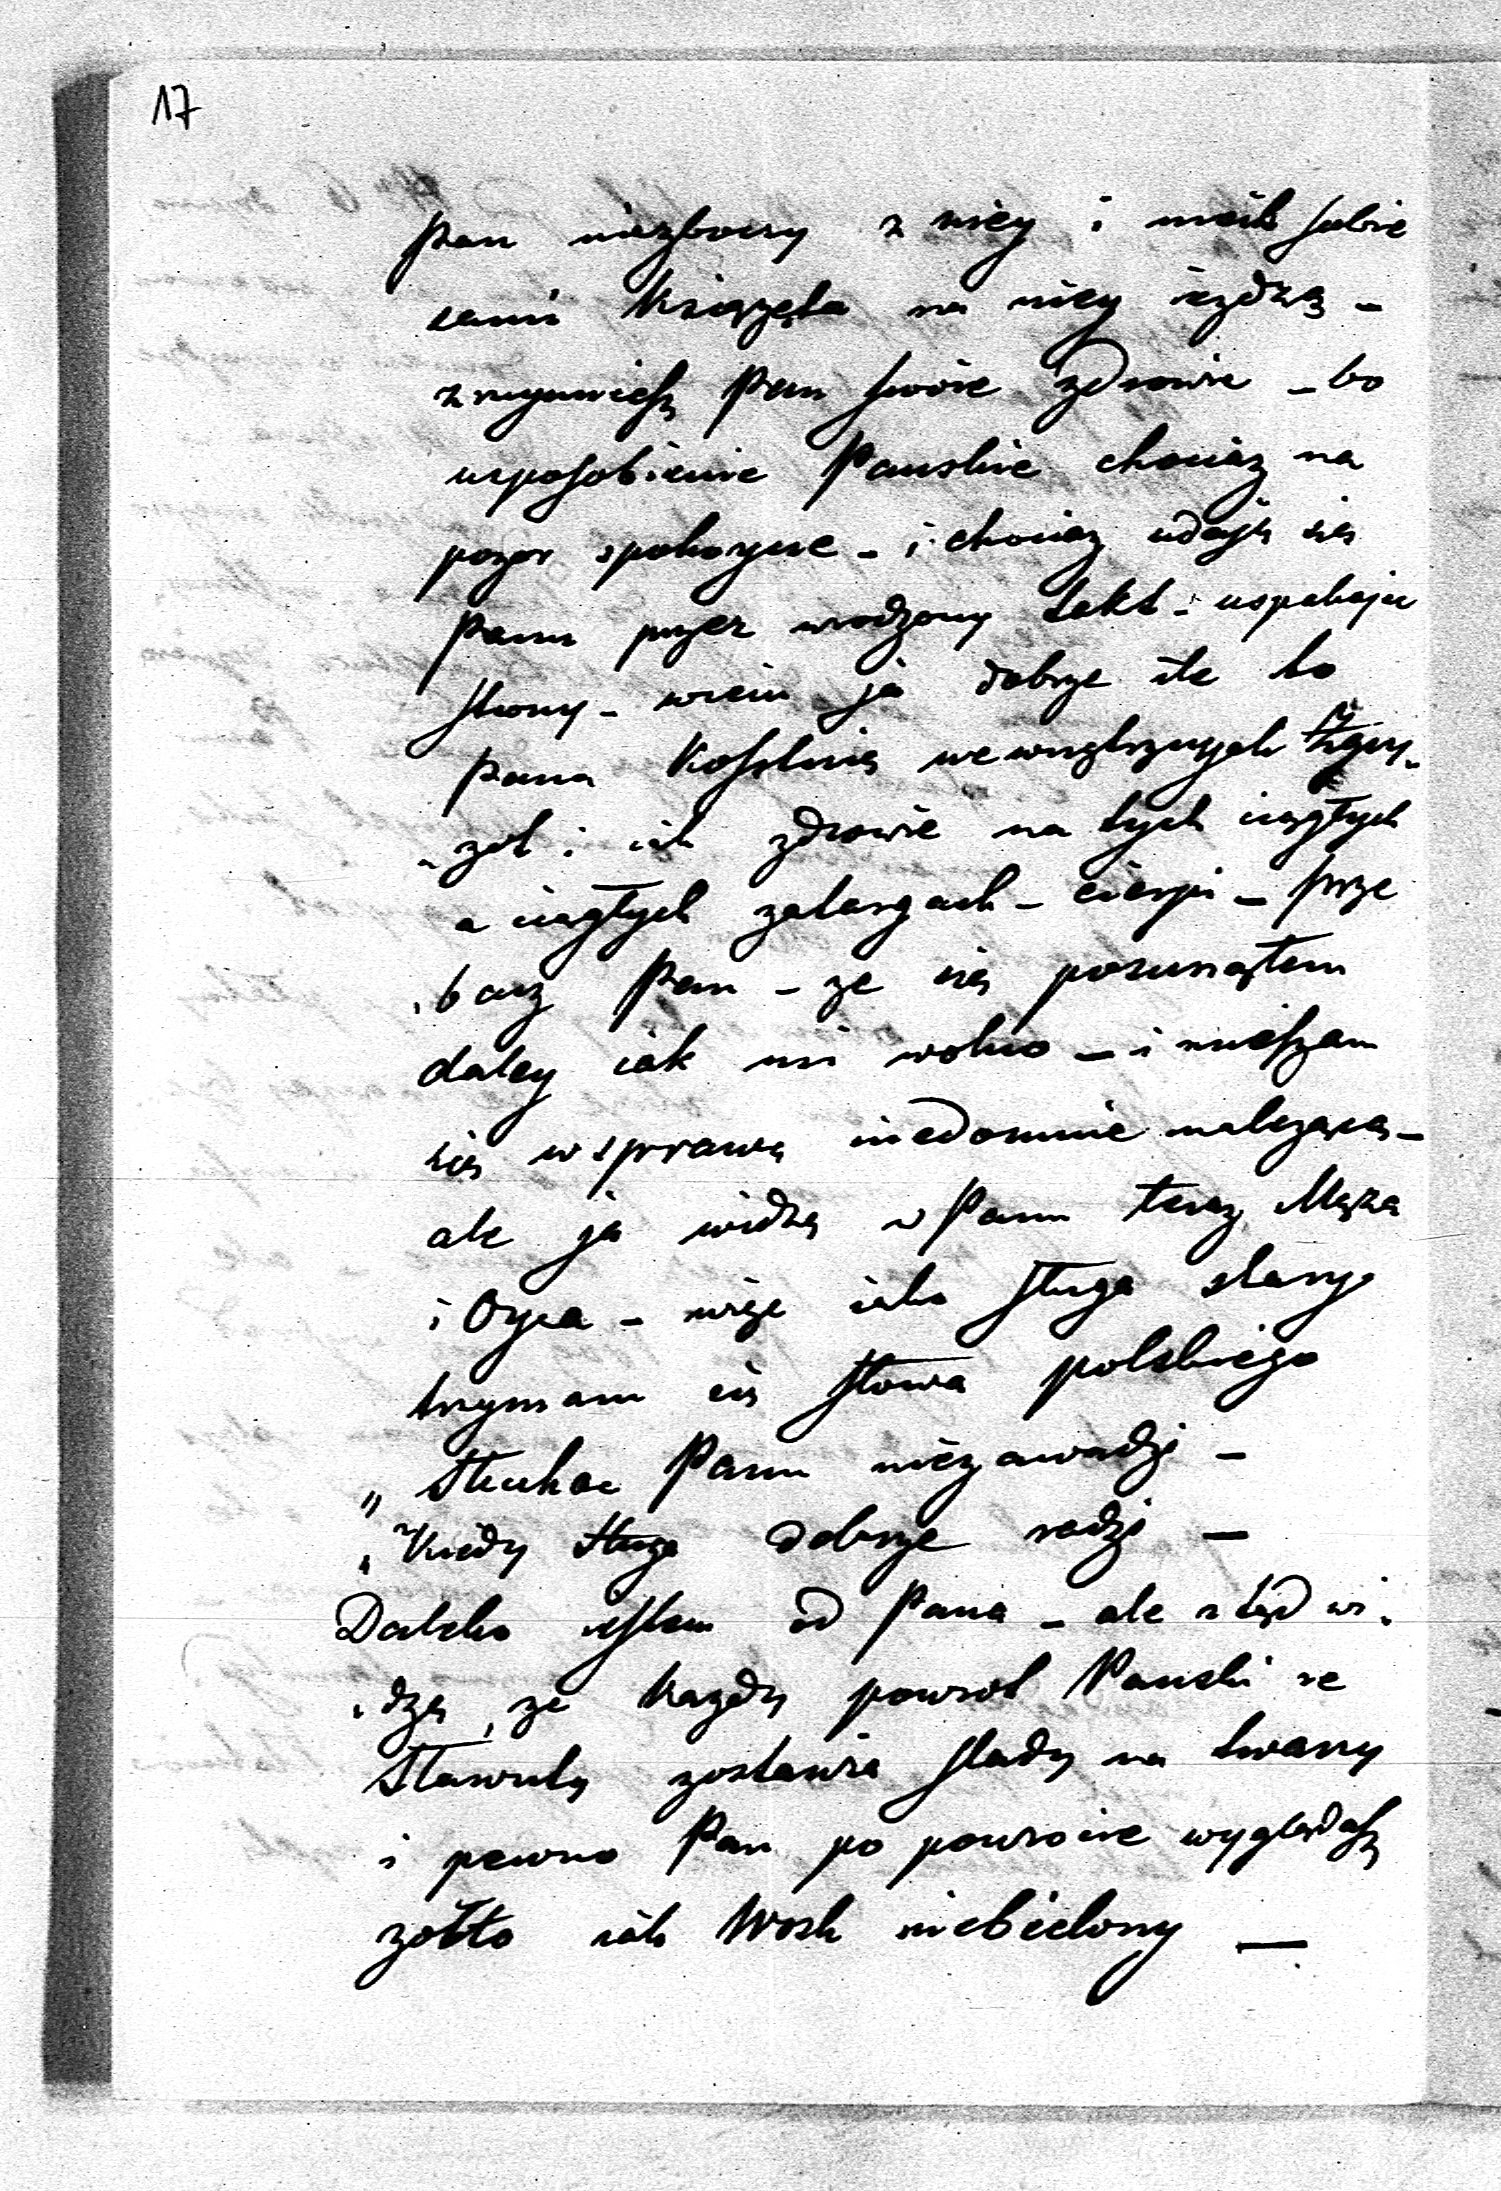 17
Pan niezboczy z niey i niech sobie
sami Książęta na niey ieżdżą –
zruynuiesz Pan swóie zdrowie – bo
usposobienie Panskie chociaz na
pozor spokoyne – i chociaz udaję się
Panu przez wrodzony takt – uspakajac
strony – wiem ja dobrze ile to
Pana kosztuie wewnętrznych zgry-
-zot i ile zdrowie na tych ciągłych
a ciągłych zatargach – cierpi – prze
-bacz Pan – ze się posunąłem
daley iak mi wolno – i mieszam
się w sprawę niedomnie należącą –
ale ja widzę w Panu teraz Męża
i Oyca – więc iako sługa stary
trzymam się słowa polskiego
„ Słuchac Panu niezawadzi –
„ Kiedy sługa dobrze radzi –
Daleko iestem od Pana – ale ztąd wi-
-dzę, ze kazdy powrot Panski ze
Sławuty zostawia slady na twarzy
i pewno Pan po powrocie wyglądasz
zółto iak Wosk niebielony –